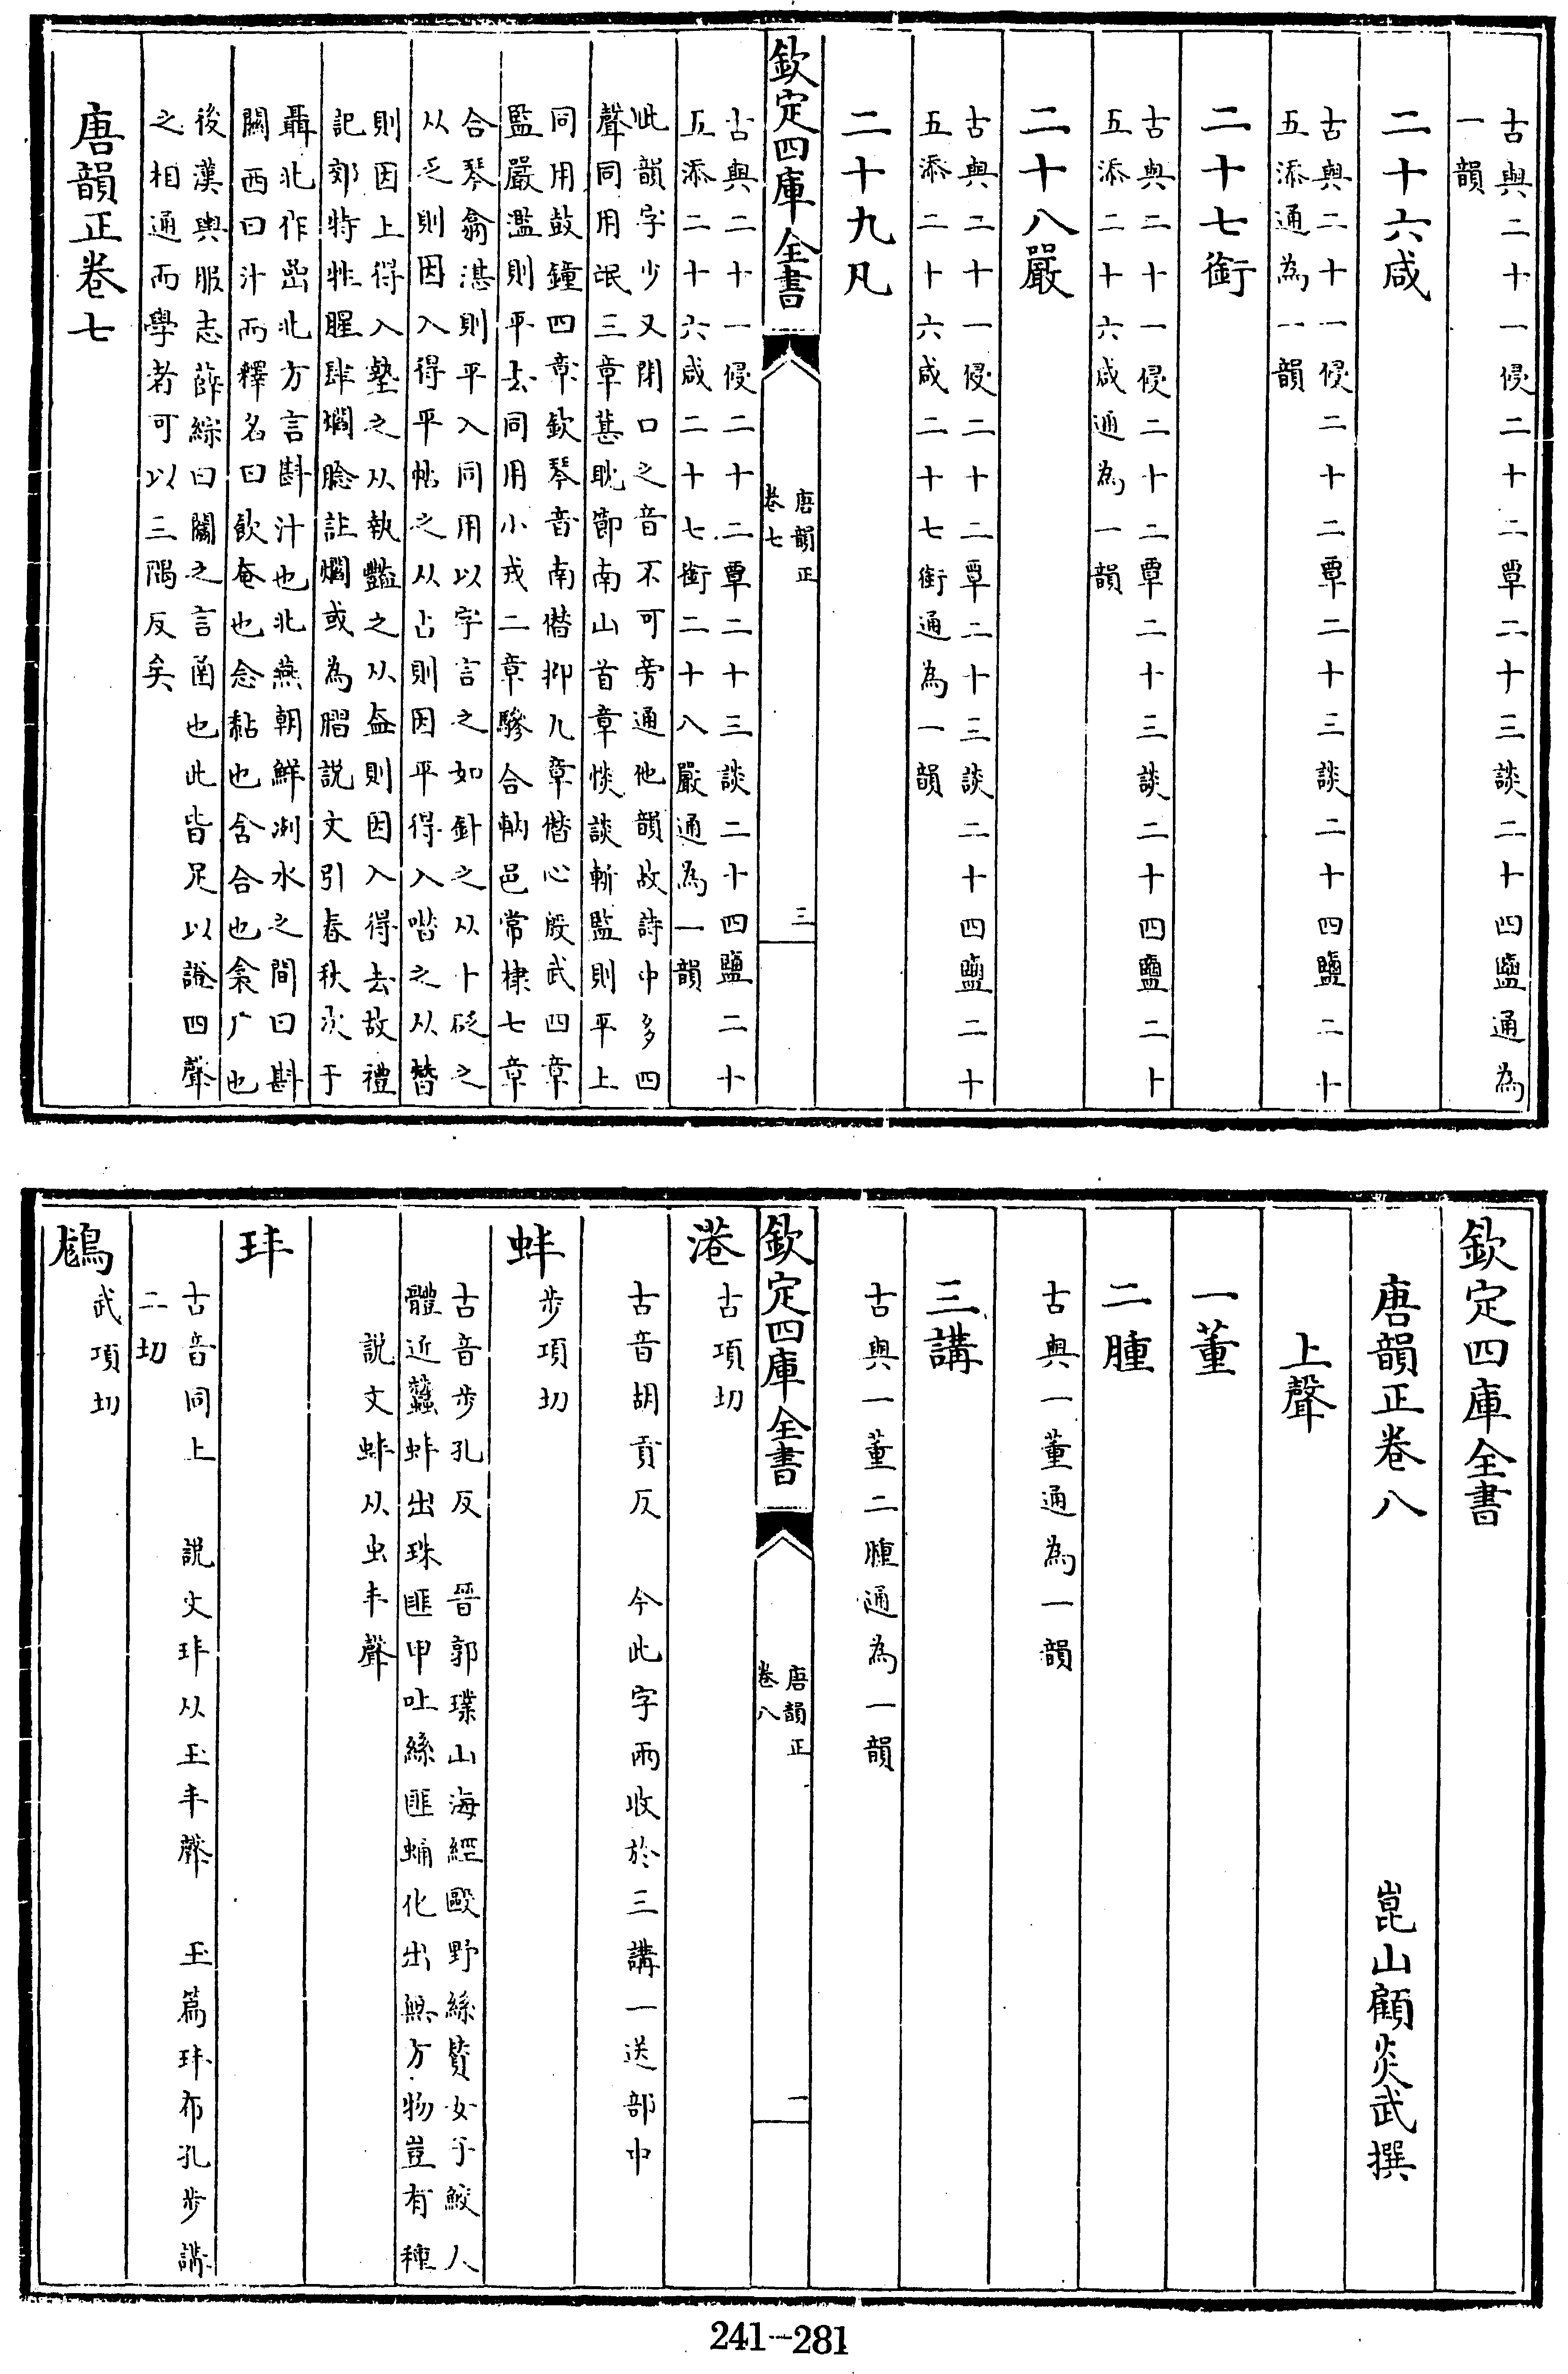 古與二十一侵二十二覃二十三談二十四鹽通為
一韻
二十六咸
古與二十一侵二十二覃二十三談二十四鹽二十
五添通為一韻
二十七銜
古與二十一侵二十二覃二十三談二十四鹽二十
五添二十六咸通為一韻
二十八嚴
古與二十一侵二十二覃二十三談二十四鹽二十
五添二十六咸二十七銜通為一韻
二十九凡
欽定四庫全書
唐韻正
卷七
三
古與二十一侵二十二覃二十三談二十四鹽二十
五添二十六咸二十七銜二十八嚴通為一韻
此韻字少又閉口之音不可旁通他韻故詩中多四
聲同用氓三章葚耽節南山首章惔談斬監則平上
同用鼓鐘四章欽琴音南僭抑九章僭心殷武四章
監嚴濫則平去同用小戎二章驂合軜邑常棣七章
合琴翕湛則平入同用以字言之如針之从十砭之
从乏則因入得平帖之从占則因平得入噆之从朁
則因上得入墊之从執豔之从盍則因入得去故禮
記郊特牲腥肆爓腍註爓或為膶說文引春秋次于
聶北作嵒北方言斟汁也北燕朝鮮洌水之間曰斟
關西曰汁而釋名曰飲奄也念黏也含合也衾广也
後漢輿服志薛綜曰闟之言函也此皆足以證四聲
之相通而學者可以三隅反矣
唐韻正卷七
欽定四庫全書
唐韻正卷八
崑山顧炎武撰
上聲
一董
二腫
古與一董通為一韻
三講
古與一董二腫通為一韻
欽定四庫全書
唐韻正
卷八
一
港
古項切
古音胡貢反 今此字兩收於三講一送部中
蚌
步項切
古音步孔反 晉郭璞山海經毆野絲贊女子鮫人
體近蠶蚌出珠匪甲吐絲匪蛹化出無方物豈有種
說文蚌从虫丰聲
玤
古音同上 說文玤从玉丰聲 玉篇玤布孔步講
二切
䳱
武項切
241-281